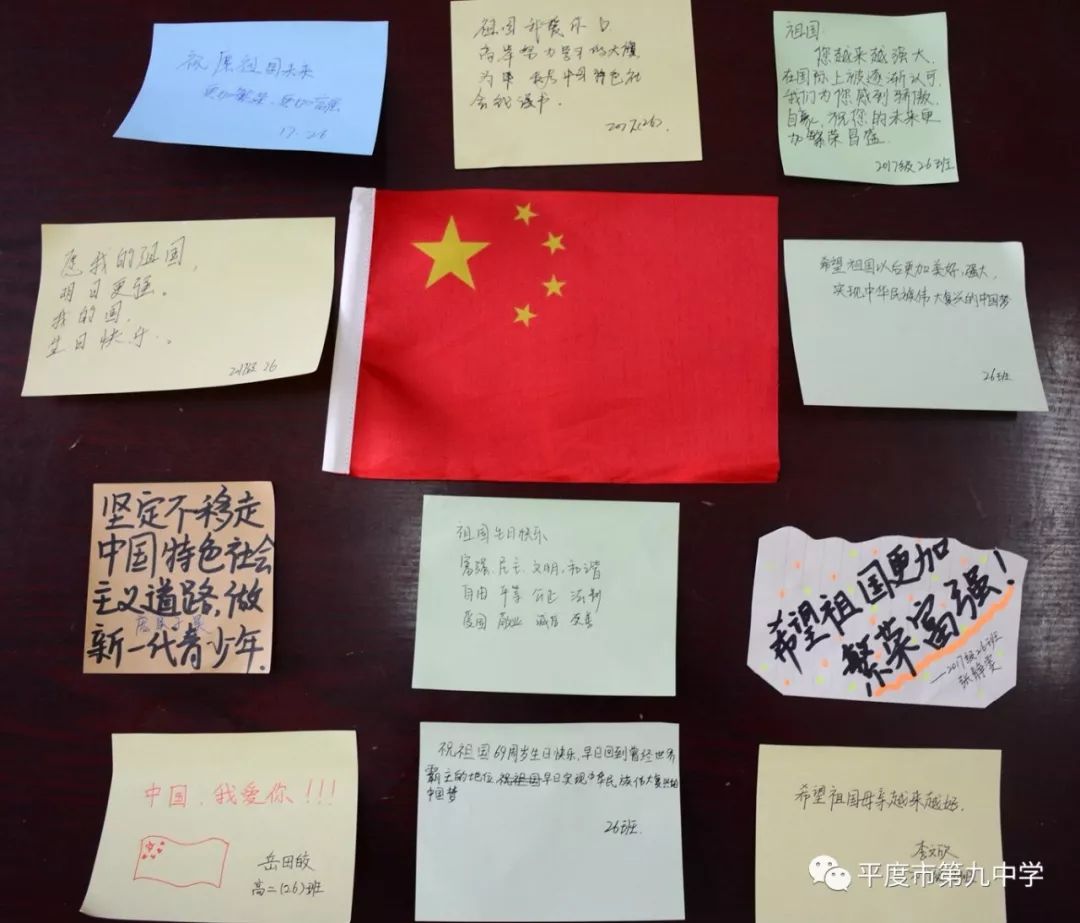 祝愿祖国未来
更加繁荣,更加富强
17.26
祖国我爱你
2017(26).
祖国:
您越来越强大,
在国际上被逐渐认可.
我们为您感到骄傲、
自豪、祝您的未来更
加繁荣昌盛.
2017级26班
愿我的祖国,
明日更强。
我的国,
生日快乐。
2017级26
希望祖国以后更加美好,强大,
实现中华民族伟大复兴的中国梦
26班
坚定不移走
中国特色社会
主义道路,做
新一代青少年.
祖国生日快乐
富强 民主 文明 和谐
自由 平等 公正 法制
爱国 敬业 诚信 友善
希望祖国更加
繁荣富强!
——2017级26班
张静雯
中国,我爱你!!!
岳田皎
高二(26)班
祝祖国69周岁生日快乐,早日回到曾经世界
霸主的地位,祝祖国早日实现中华民族伟大复兴的
中国梦
26班.
希望祖国母亲越来越好.
李文欣
平度市第九中学